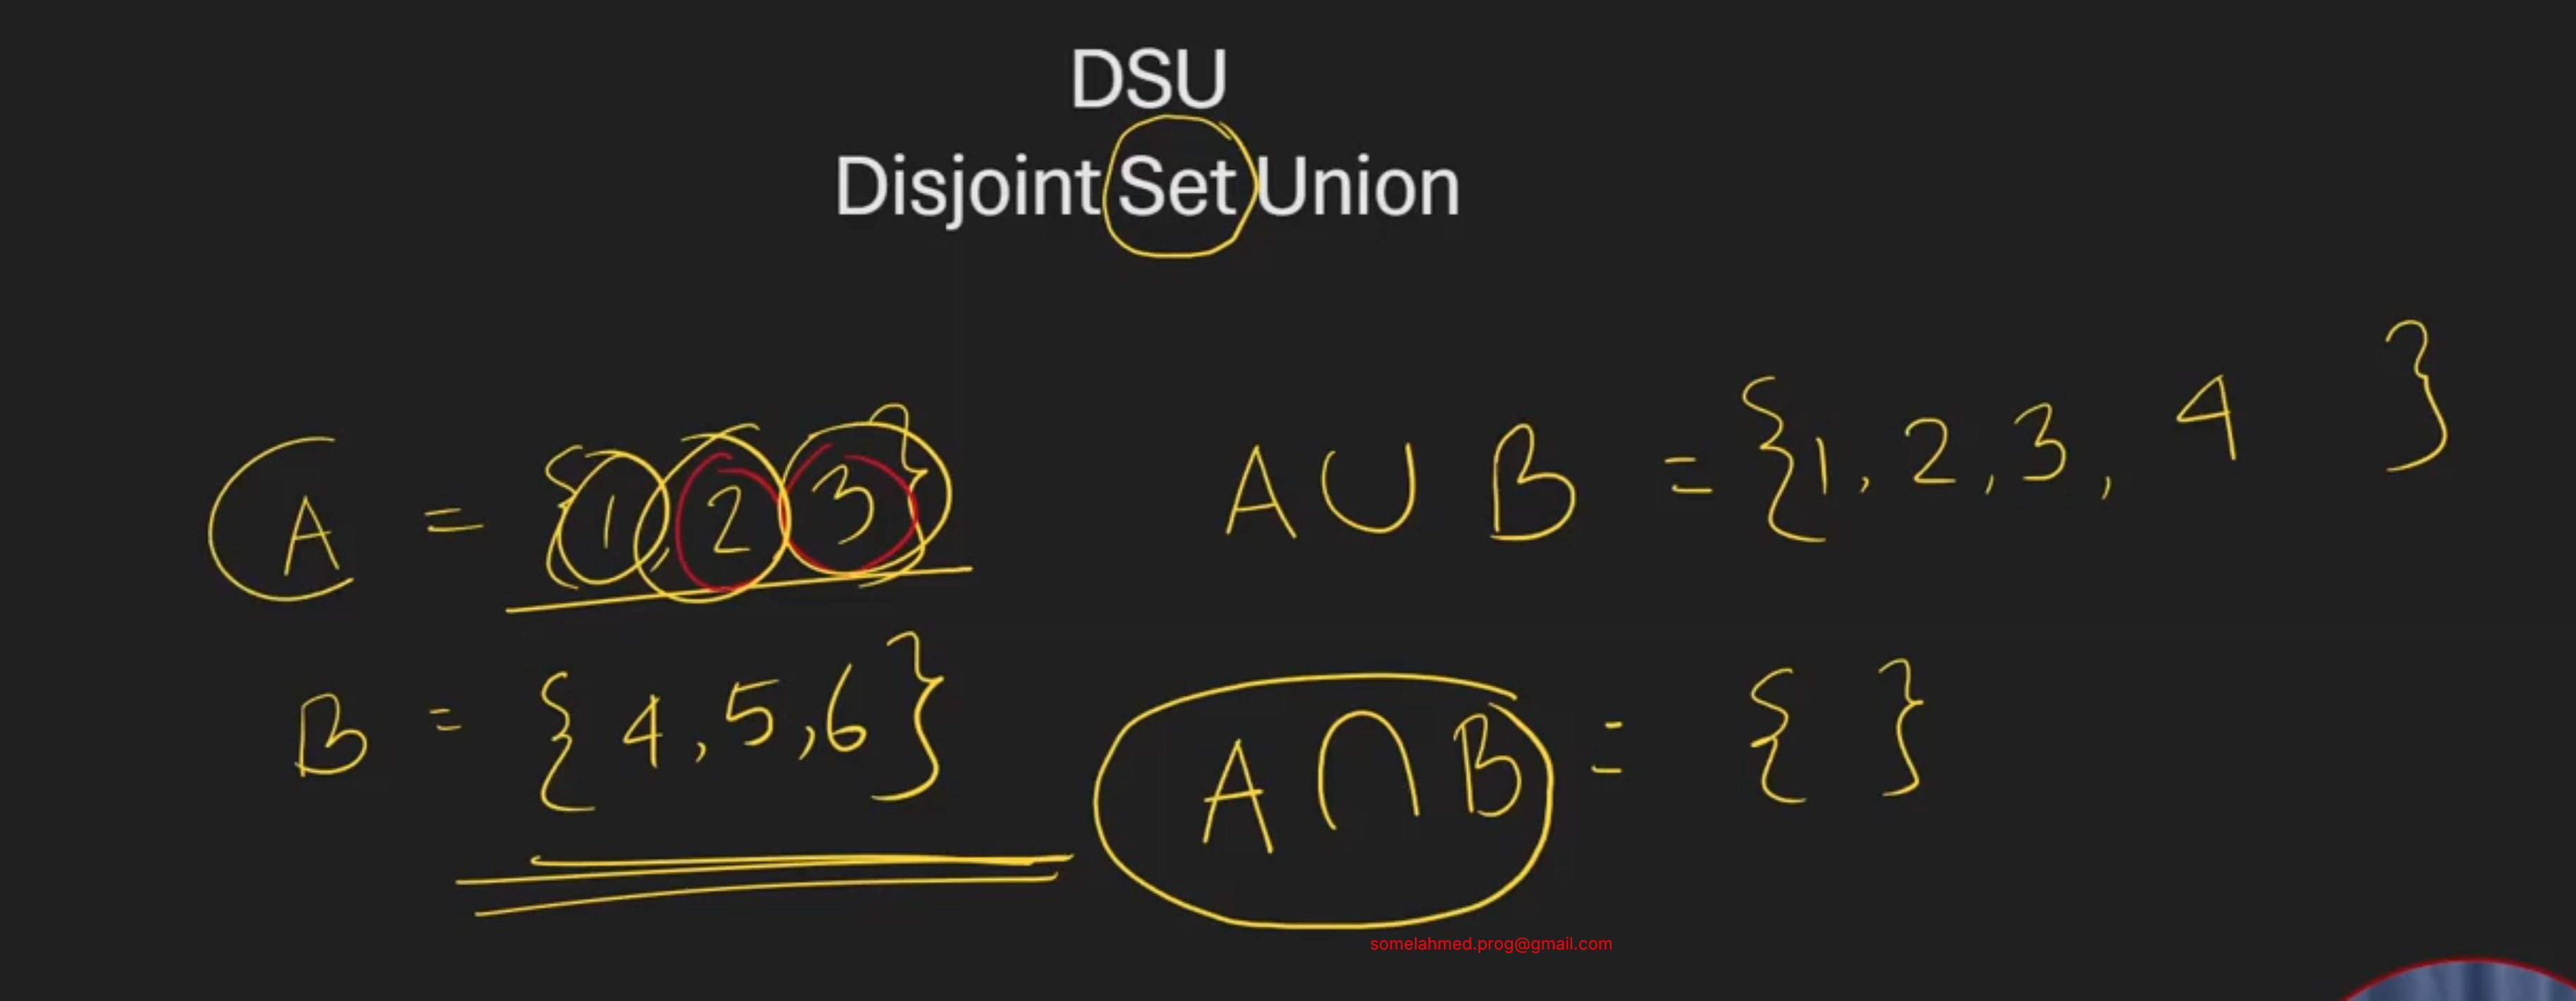 DSU
Disjoint Set Union
A = {1, 2 3}
A ∪ B = {1, 2, 3, 4 }
B = {4, 5, 6}
A ∩ B = { }
somelahmed.prog@gmail.com